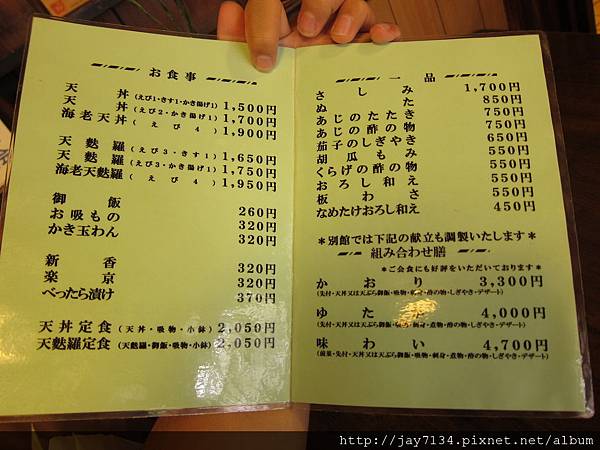 お食事
天丼(えび1・きす1・かき揚げ1) 1,500円
天丼(えび2・かき揚げ1) 1,700円
海老天丼(えび4) 1,900円
天麩羅(えび3・きす1) 1,650円
天麩羅(えび3・かき揚げ1) 1,750円
海老天麩羅(えび4) 1,950円
御飯 260円
お吸もの 320円
かき玉わん 320円
新香 320円
楽京 320円
べったら漬け 370円
天丼定食(天丼・吸物・小鉢) 2,050円
天麩羅定食(天麩羅・御飯・吸物・小鉢) 2,050円
一品
さしみ 1,700円
ぬた 850円
あじのたたき 750円
あじの酢の物 750円
茄子のしぎやき 650円
胡瓜もみ 550円
くらげの酢の物 550円
おろし和え 550円
板わさ 550円
なめたけおろし和え 450円
*別館では下記の献立も調製いたします*
組み合わせ膳
*ご会食にも好評をいただいております*
かおり 3,300円
(先付・天丼又は天ぷら御飯・吸物・刺身・酢の物・しぎやき・デザート)
ゆたか 4,000円
(先付・天丼又は天ぷら御飯・吸物・刺身・煮物・酢の物・しぎやき・デザート)
味わい 4,700円
(前菜・先付・天丼又は天ぷら御飯・吸物・刺身・煮物・酢の物・しぎやき・デザート)
http://jay7134.pixnet.net/album